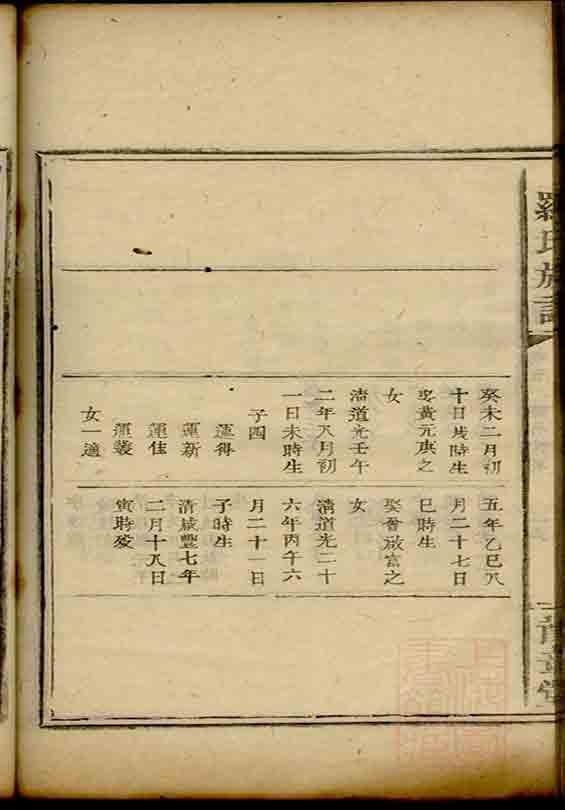 羅氏族譜
癸未二月初
十日戌時生
娶黃元庚之
女
清道光壬午
二年八月初
一日未時生
子四
運得
運新
運佳
運義
女一適
五年乙巳八
月二十七日
巳時生
娶曾啟富之
女
清道光二十
六年丙午六
月二十一日
子時生
清咸豐七年
二月十八日
寅時歿